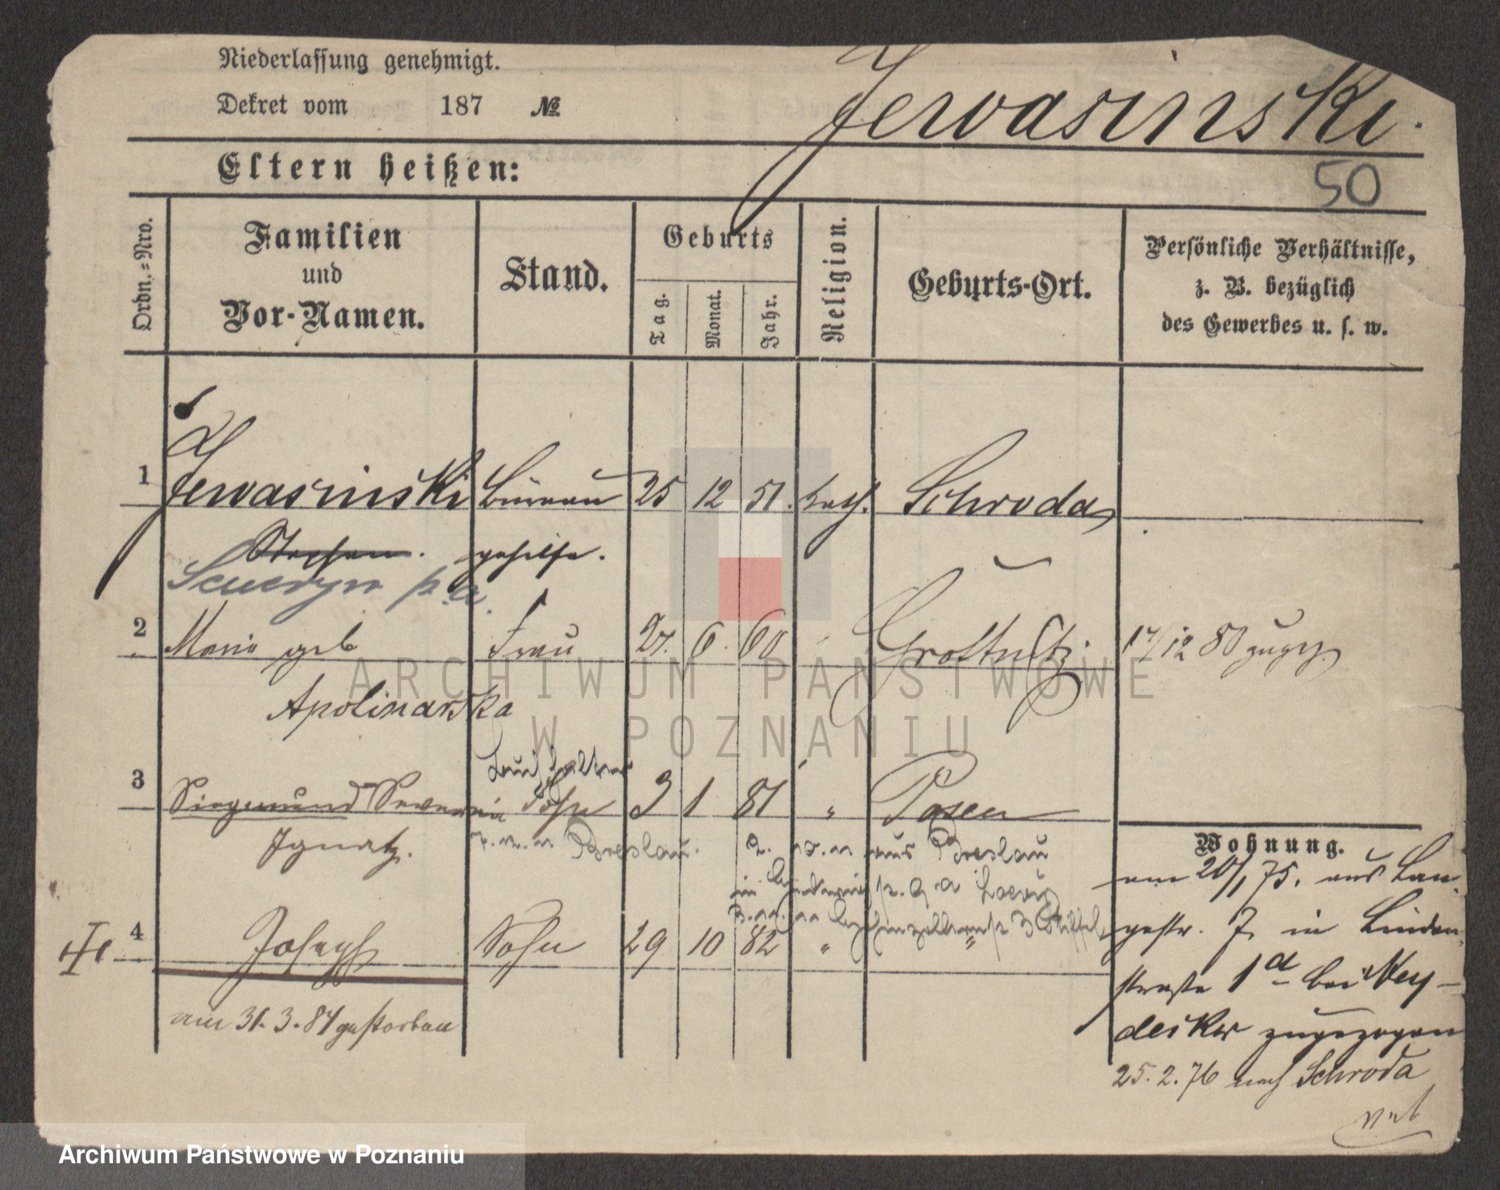 Niederlassung genehmigt.
Dekret vom 187 №
Jerwasinski.
Eltern heißen:
50
Ordn.=Nro.
Familien
und
Vor-Namen.
Stand.
Geburts
Tag.
Monat.
Jahr.
Religion.
Geburts-Ort.
Persönliche Verhältnisse,
z. B. bezüglich
des Gewerbes u. s. w.
1 Jerwasinski Büreau 25 12 51. kath. Schroda
Stefan. gehilfe.
Seweryn p. a.
2 Marie geb Frau 27. 6. 60 17/12 80 zugez.
Apolinarska
ARCHIWUM PAŃSTWOWE
W POZNANIU
Buchhalter
3 Siegmund Severin Sohn 3 1 81 " Posen
Ignatz.
Breslau. aus Breslau
Wohnung.
am 20/1 75. aus Lan-
gestr. 7 in Linden-
4 Joseph Sohn 29 10 82 " "
straße 1d bei Ney-
decker zugezogen
am 31. 3. 84 gestorben
25. 2. 76 nach Schroda
Archiwum Państwowe w Poznaniu